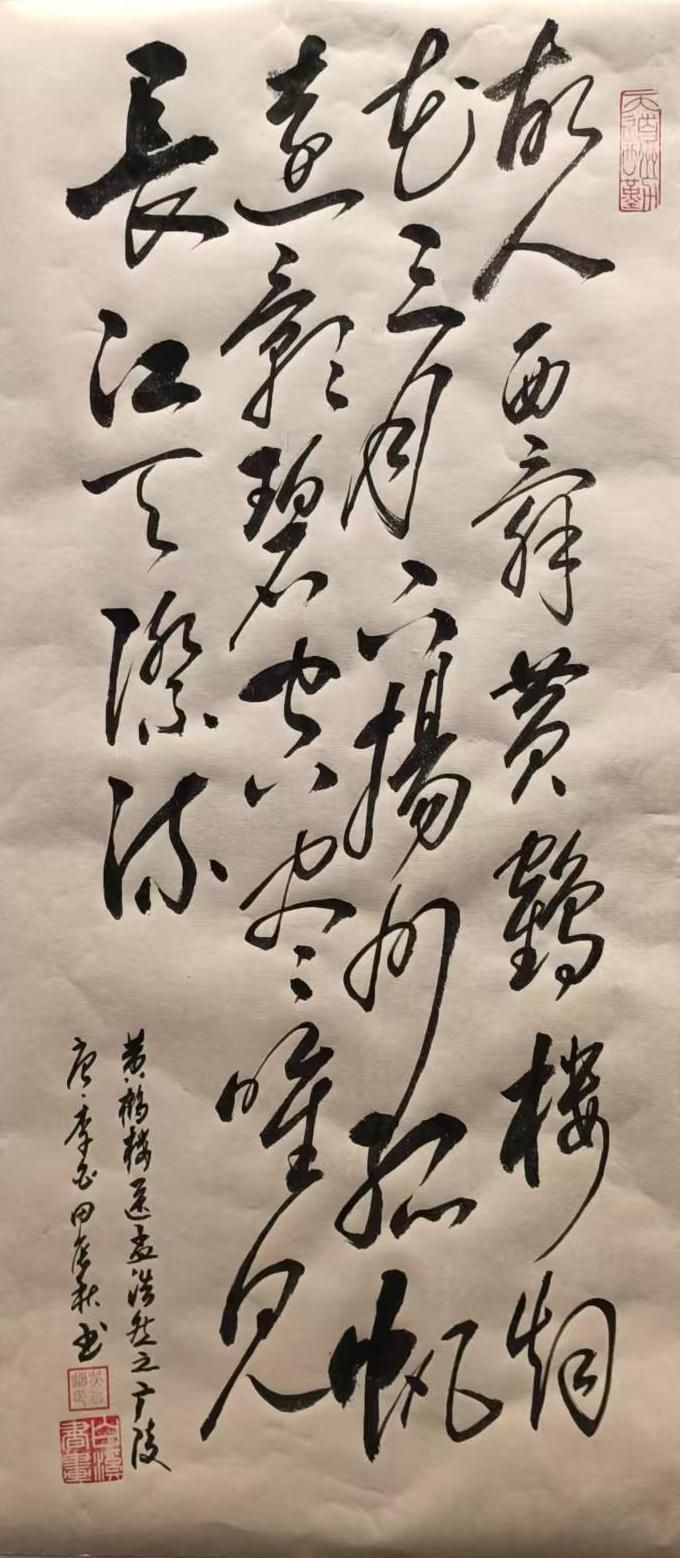 故人西辭黄鶴楼烟
花三月下揚州孤帆
遠影碧空尽唯見
長江天際流
黄鹤楼送孟浩然之广陵
唐李白甲辰秋书